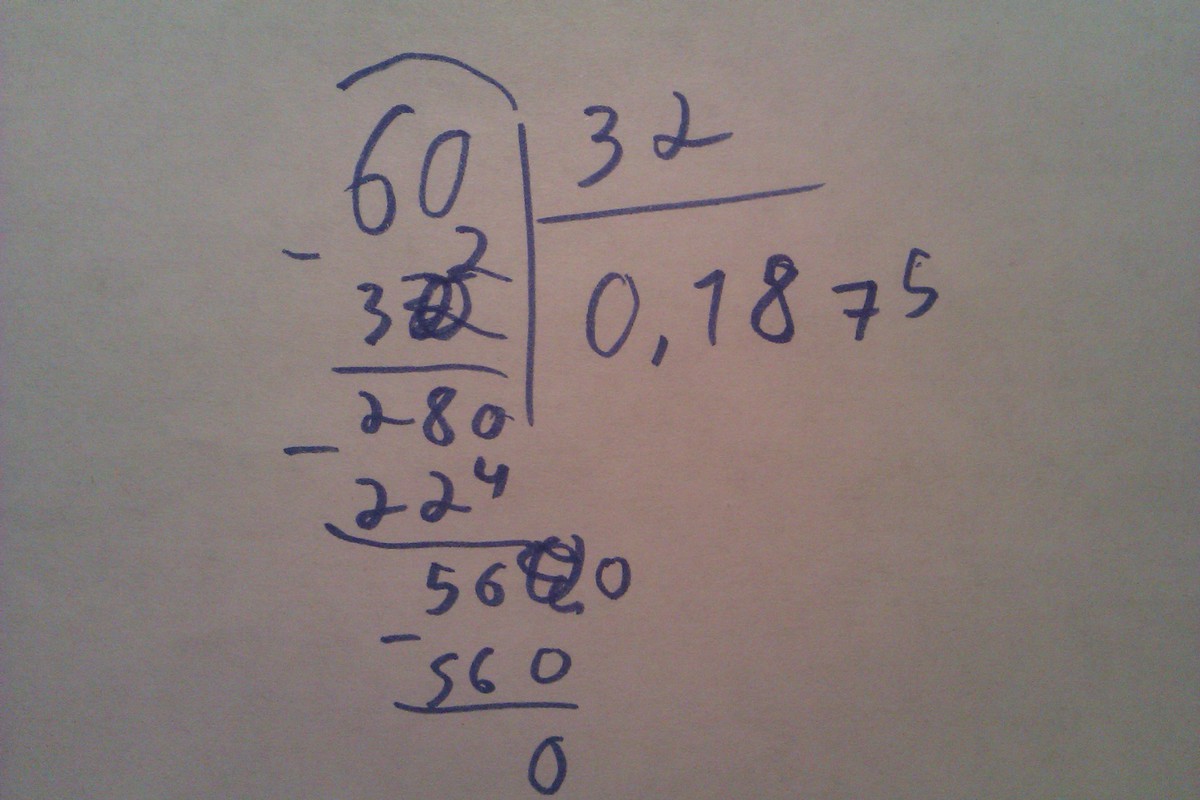 60 32
- 32
0,1875
280
- 224
560
- 560
0